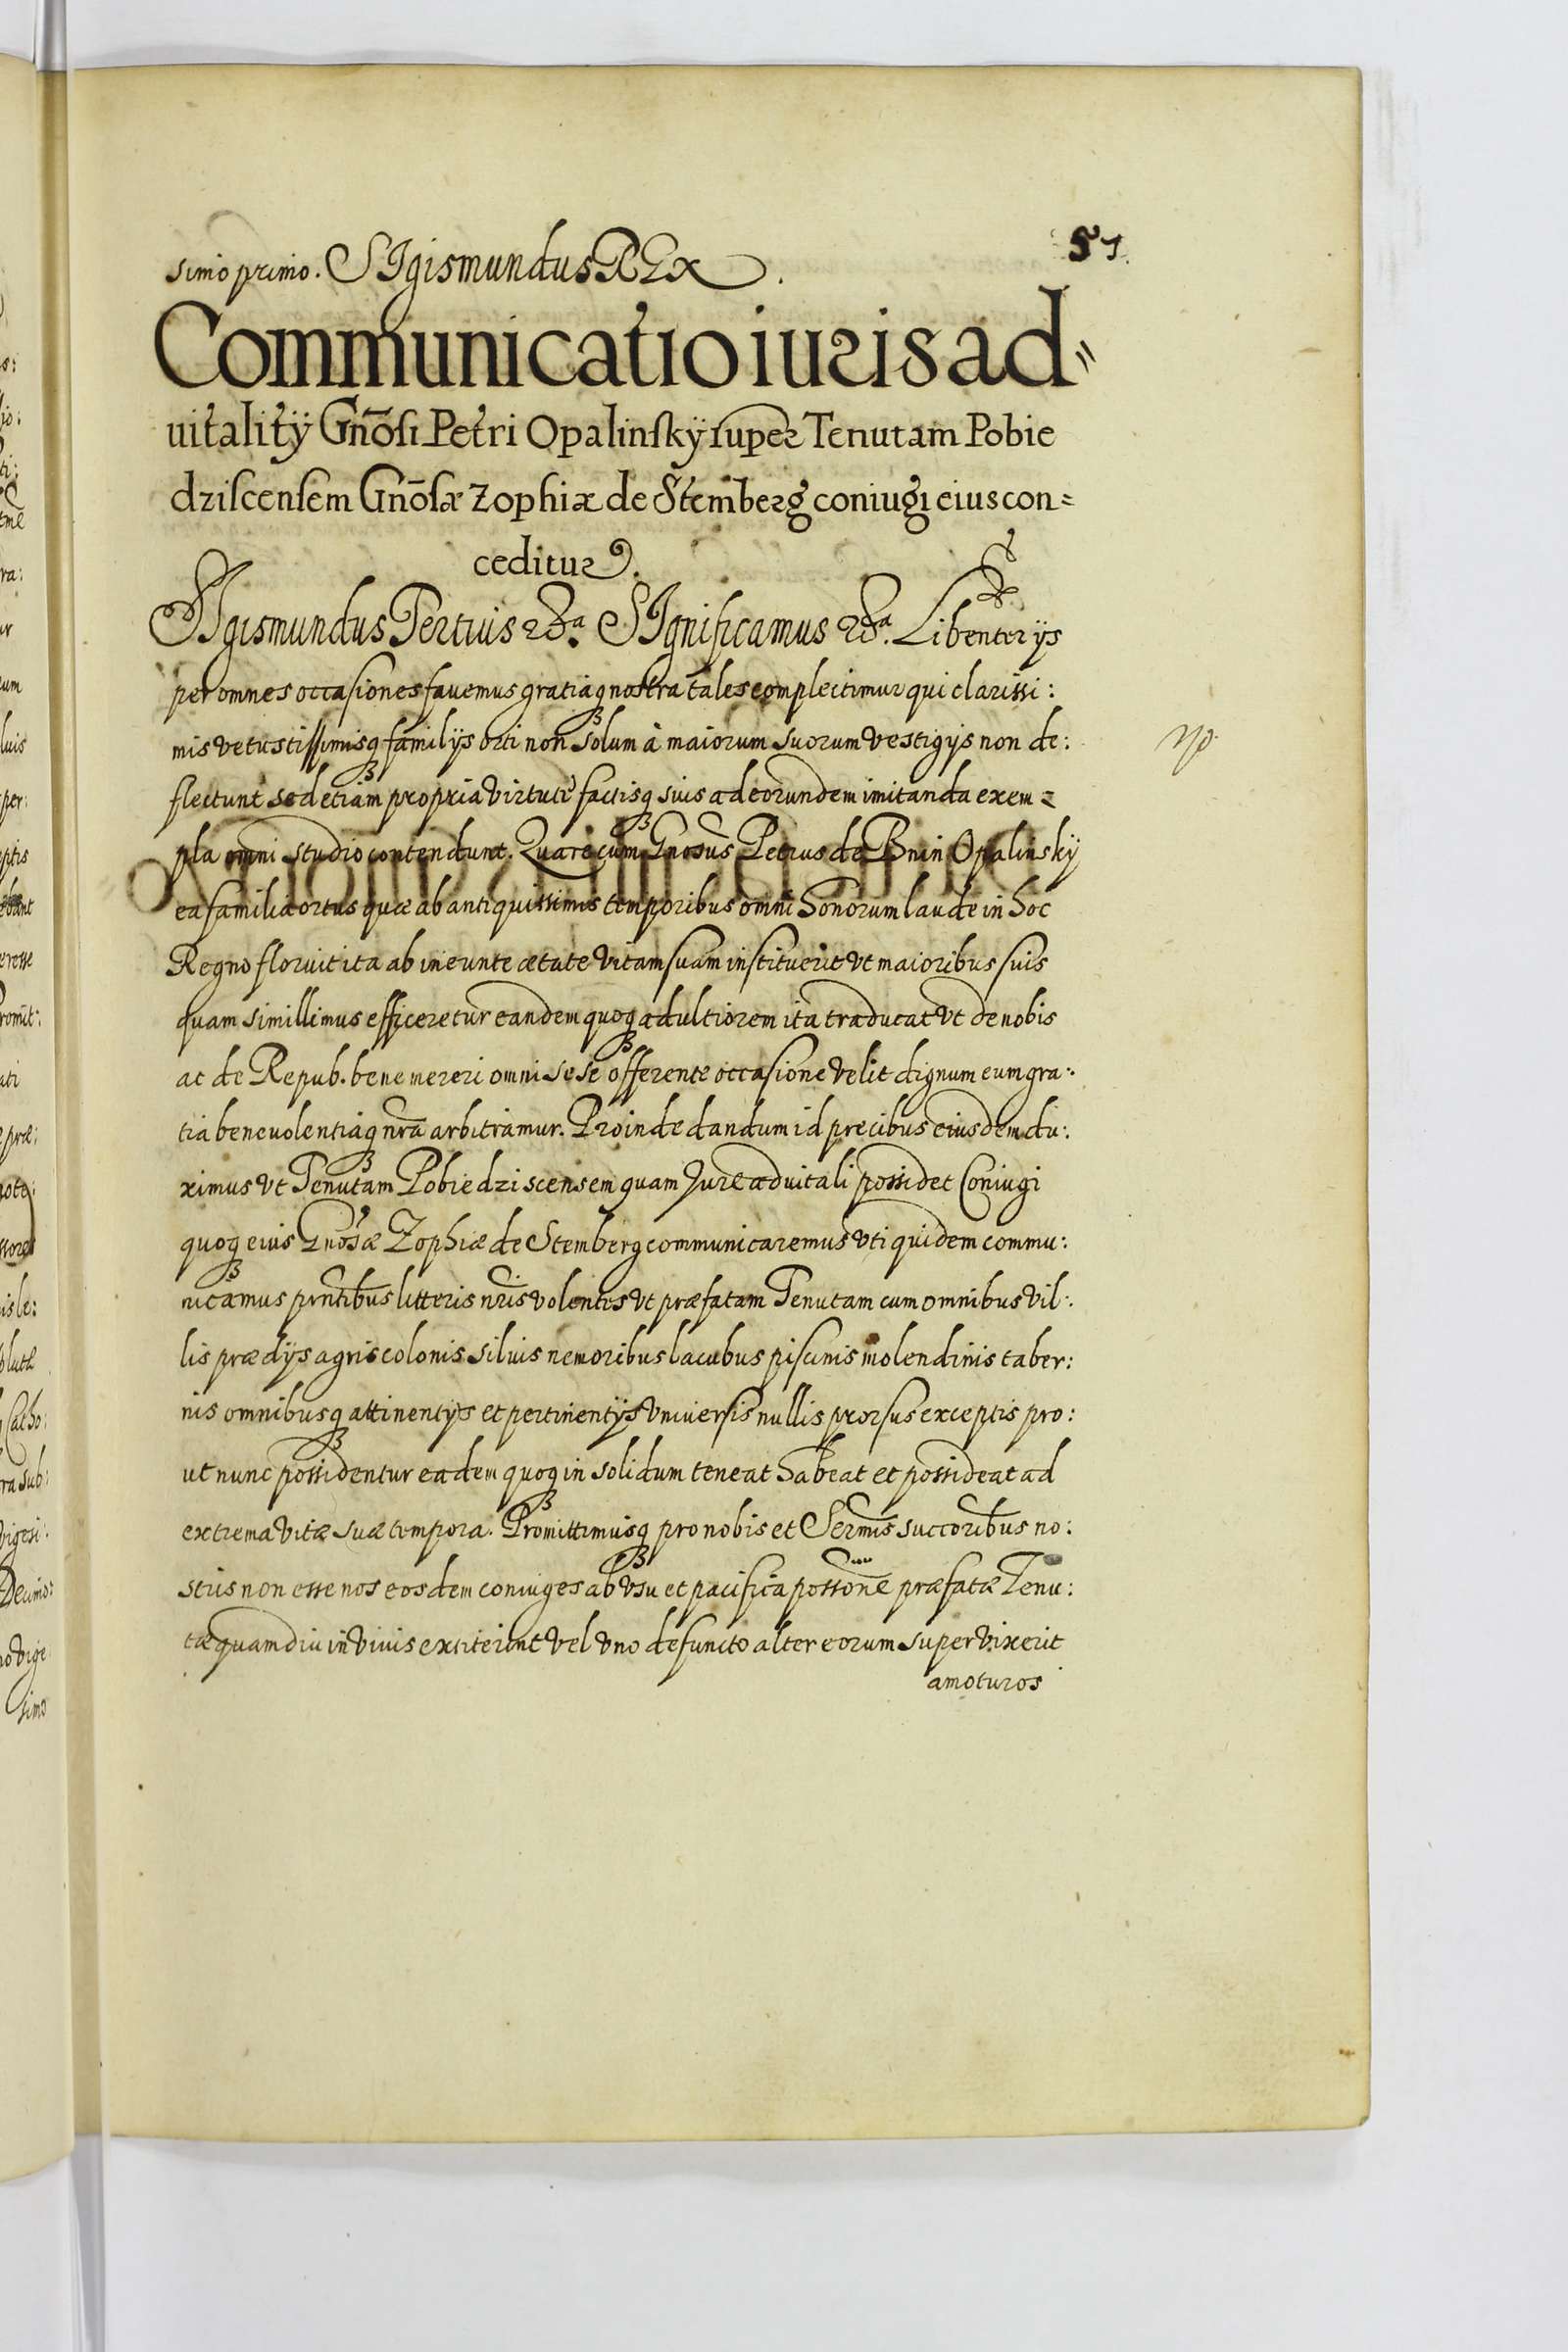 51.
simo primo. SIgismundus REx.
Communicatio iuris ad=
uitalitÿ Gnōsi Petri Opalinskÿ super Tenutam Pobie
dziscensem Gnōsæ Zophiæ de Stemberg coniugi eius con=
ceditur.
SIgismundus Tertius &cª. SIgnificamus &cª. Libenter ijs
per omnes occasiones fauemus gratiaq nostra tales complectimur qui clarissi:
mis vetustissimisq familijs orti non solum à maiorum suorum vestigijs non de:
flectunt sed etiam propria virtute factisq suis ad eorundem imitanda exem=
pla omni studio contendunt. Quare cum Gnosus Petrus de Bnin Opalinskÿ
ea familia ortus quæ ab antiquissimis temporibus omni honorum laude in hoc
Regno floruit ita ab ineunte ætate vitam suam instituerit vt maioribus suis
quam simillimus efficeretur eandem quoq adultiorem ita traducat vt de nobis
ac de Repub. bene mereri omni sese offerente occasione velit dignum eum gra:
tia beneuolentiaq nr̄a arbitramur. Proinde dandum id precibus eiusdem du:
ximus vt Tenutam Pobiedziscensem quam Jure aduitali possidet Coniugi
quoq eius Gnosæ Zophiæ de Stemberg communicaremus vti quidem commu:
nicamus prntibus litteris nris volentes vt præfatam Tenutam cum omnibus vil:
lis prædijs agris colonis siluis nemoribus lacubus piscinis molendinis taber:
nis omnibusq attinentijs et pertinentijs vniuersis nullis prorsus exceptis pro:
ut nunc possidentur eadem quoq in solidum teneat habeat et possideat ad
extrema vitæ suæ tempora. Promittimusq pro nobis et Sermis succoribus no:
stris non esse nos eosdem coniuges ab vsu et pacifica possone præfatæ Tenu:
tæ quamdiu in viuis extiterint vel vno defuncto alter eorum superuixerit
amoturos